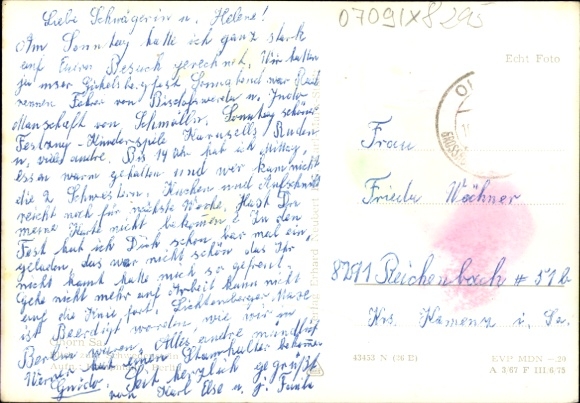 Liebe Schwägerin u. Helene!
Am Sonntag hatte ich ganz stark
auf Euren Besuch gerechnet. Wir hatten
ja unser Gickelsbergfest Sonnabend war Rad
rennen Fahrer von Bischofswerda u. Judo
Manschaft von Schmölln, Sonntag schöner
Festzug - Kinderspiele Karusells Buden
u. vieles andre. Bis 14 Uhr hab ich Mittag
essen warm gehalten und wer kam nicht
die 2 Schwestern. Kuchen und Aufschnitt
reicht noch für nächste Woche. Hast Du
meine Karte nicht bekommen? In den
Fest hab ich Dich schon mal ein
geladen das war nicht schön das Ihr
nicht kamt hatte mich so gefreut.
Gehe nicht mehr auf Arbeit kann nicht
auf die Knie fort. Lichtenberger
ist Beerdigt worden, wie wir in
Berlin waren. Alles andre mündlich
Werner hat einen Stammhalter bekommen
Guido. Seit herzlich gegrüßt
von Karl Else u.
07091X8295
Echt Foto
Frau
Frieda Wöhner
8291 Reichenbach # 51b
Krs. Kamenz i. Sa.
43453 N (26 D)
EVP MDN -.20
A 3/67 F III/6/75